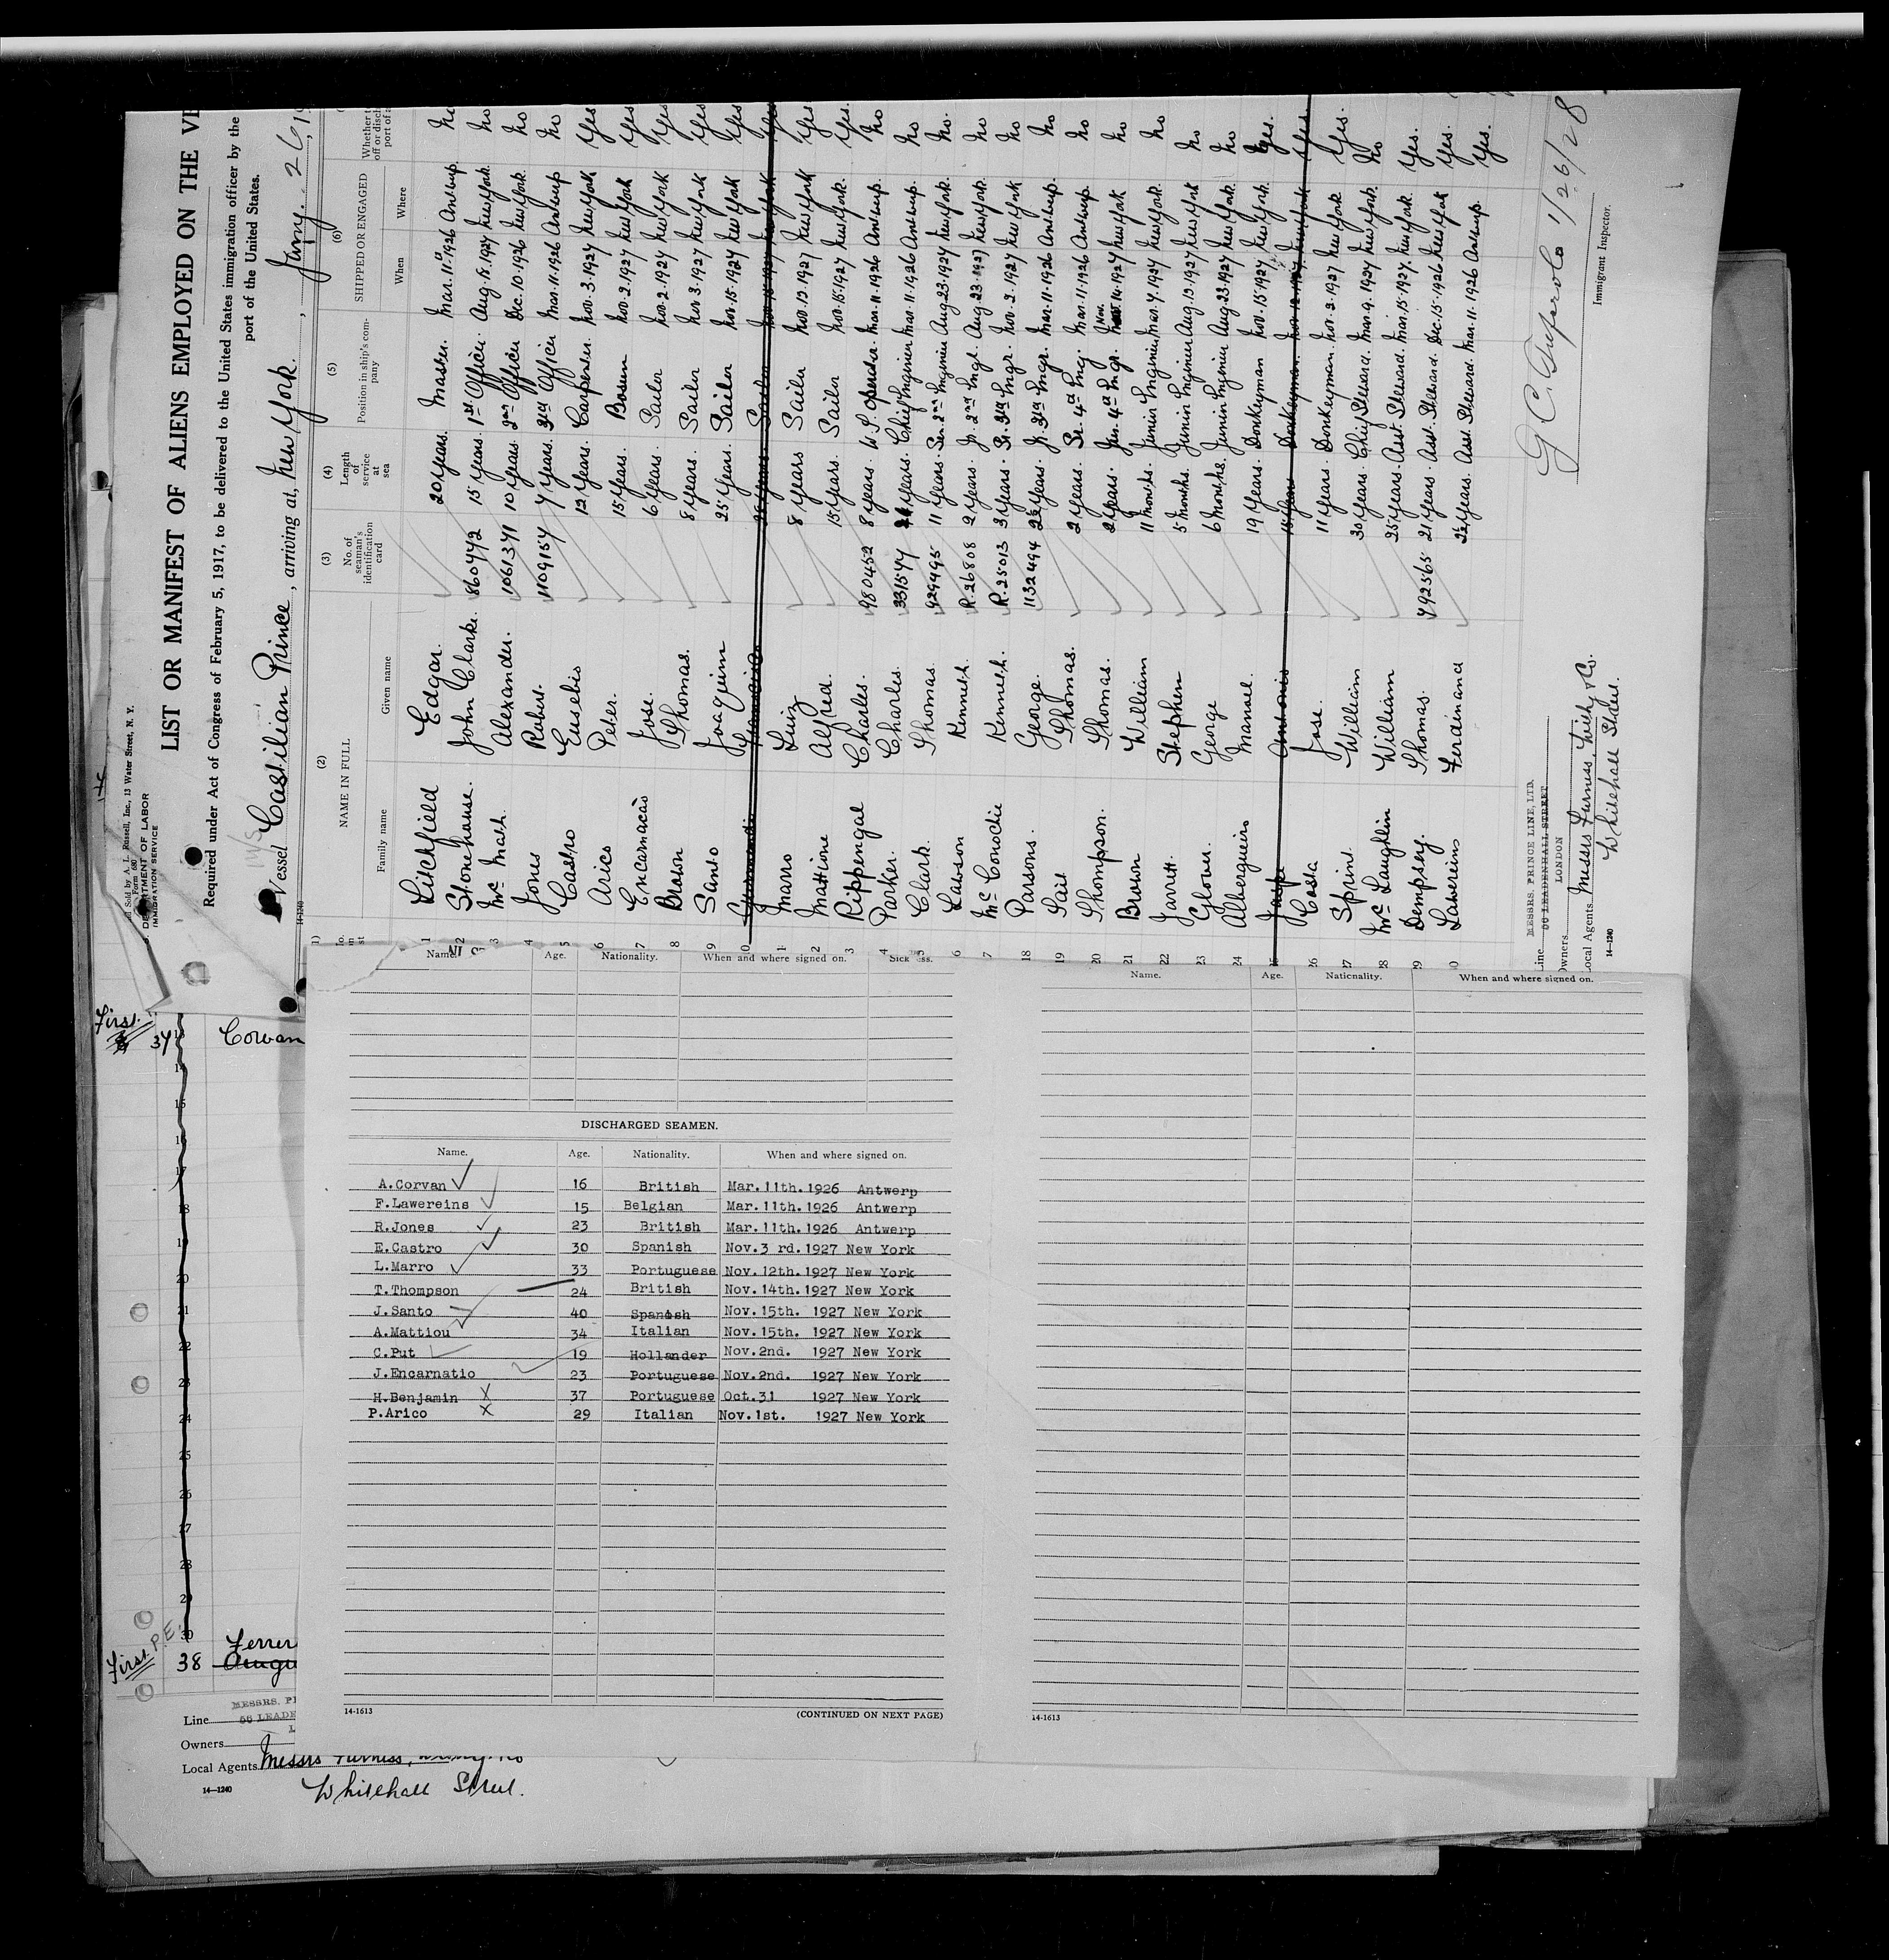 and Sold by A. L. Russell, Inc., 13 Water Street, N. Y.
Form 680
DEPARTMENT OF LABOR
IMMIGRATION SERVICE
LIST OR MANIFEST OF ALIENS EMPLOYED ON THE
Required under Act of Congress of February 5, 1917, to be delivered to the United States immigration officer by the
port of the United States.
Vessel Castilian Prince, arriving at New York.
14-1240
(2) (3) (4) (5) (6)
NAME IN FULL No. of seaman's identification card Length of service at sea Position in ship's company SHIPPED OR ENGAGED
Family name Given name When Where
1 Litchfield Edgar. 20 Years. Master. Mar. 11 1926 Antwerp.
2 Stonehouse. John Clarke. 860472 15 Years. 1st Officer. Aug. 5. 1927 New York. No
3 Mc Math. Alexander. 1061371 10 Years. 2nd Officer Dec. 10. 1926 New York. No
4 Jones Robert. 1109157 7 Years. 3rd Officer Mar. 11. 1926 Antwerp No
5 Castro Eusebio 12 Years. Carpenter. Nov. 3. 1927 New York Yes
6 Arico Peter. 15 Years. Bosun Nov. 2. 1927 New York Yes
7 Encarnacào Jose. 6 Years. Sailor Nov. 2. 1927 New York Yes
8 Brown Thomas. 8 Years. Sailor Nov 3. 1927 New York Yes
9 Santo Joaquim 25 Years. Sailor Nov. 15. 1927 New York Yes
Marro Luiz 8 Years Sailor Nov. 12. 1927 New York Yes
Mattione Alfred. 15 Years. Sailor Nov. 15. 1927 New York. Yes.
Rippengal Charles. 980452 8 Years W.S. Operator. Mar. 11. 1926 Antwerp. No
Parker. Charles. 331577 Years. Chief Engineer Mar. 11. 1926 Antwerp. No
Clark. Thomas. 929995 11 Years. Sr. 2nd Engineer Aug. 23. 1927 New York. No.
Lawson Kenneth. R. 26808 2 Years. Jr. 2nd Engr. Aug. 23. 1927 New York. No
Mc Conochie Kenneth. R. 25013 3 Years. Sr. 3rd Engr. Nov. 2. 1927 New York No
18 Parsons. George. 1132494 Years. Jr. 3rd Engr. Mar. 11. 1926 Antwerp. No
19 Tait Thomas. 2 Years. Sr. 4th Eng. Mar. 11. 1926 Antwerp. No
20 Thompson. Thomas. 2 Years. Jun. 4th Engr. Nov. 14. 1927 New York No
21 Brown William 11 Months. Junior Engineer Mar. 7. 1927 New York. No
22 Jarritt. Stephen 5 Months. Junior Engineer Aug. 13. 1927 New York No
23 Glover. George 6 Months. Junior Engineer Aug. 23. 1927 New York. No
24 Albergueiro Manuel. 19 Years. Donkeyman Nov. 15. 1927 New York. Yes.
Antonio Donkeyman. Nov. 12. 1927. New York Yes.
26 Costa Jose. 11 Years. Donkeyman. Nov. 2. 1927 New York. Yes.
27 Sprint. William 30 Years. Chief Steward. Mar. 9. 1927 New York. No
28 Mc Laughlin William 25 Years. Asst. Steward. Mar. 15. 1927. New York. Yes.
29 Dempsey. Thomas. 792565 21 Years. Asst. Steward. Dec. 15. 1926 New York Yes.
Lawereins Ferdinand Years. Asst. Steward. Mar. 11. 1926 Antwerp. Yes.
Line MESSRS. PRINCE LINE, LTD.
56 LEADENHALL STREET
Owners LONDON
Local Agents Messrs Furness, Withy & Co.
Whitehall Street.
14-1240
1/26/28
Immigrant Inspector.
Name. Age. Nationality. When and where signed on.
Name. Age. Nationality. When and where signed on.
DISCHARGED SEAMEN.
Name. Age. Nationality. When and where signed on.
A.Corvan 16 British Mar.11th.1926 Antwerp
F.Lawereins 15 Belgian Mar.11th.1926 Antwerp
R.Jones 23 British Mar.11th.1926 Antwerp
E.Castro 30 Spanish Nov.3 rd.1927 New York
L.Marro 33 Portuguese Nov.12th.1927 New York
T.Thompson 24 British Nov.14th.1927 New York
J.Santo 40 Spanish Nov.15th. 1927 New York
A.Mattiou 34 Italian Nov.15th. 1927 New York
C.Put 19 Hollander Nov.2nd. 1927 New York
J.Encarnatio 23 Portuguese Nov.2nd. 1927 New York
H.Benjamin X 37 Portuguese Oct.31 1927 New York
P.Arico X 29 Italian Nov.1st. 1927 New York
14-1613
(CONTINUED ON NEXT PAGE)
14-1613
First.
37 Cowan
14
15
16
17
18
19
20
21
22
23
24
25
26
27
28
29
30
First P.E.
38
Line MESSRS. PR
56 LEADE
Owners
Local Agents Messrs Furness,
Whitehall Street.
14-1240